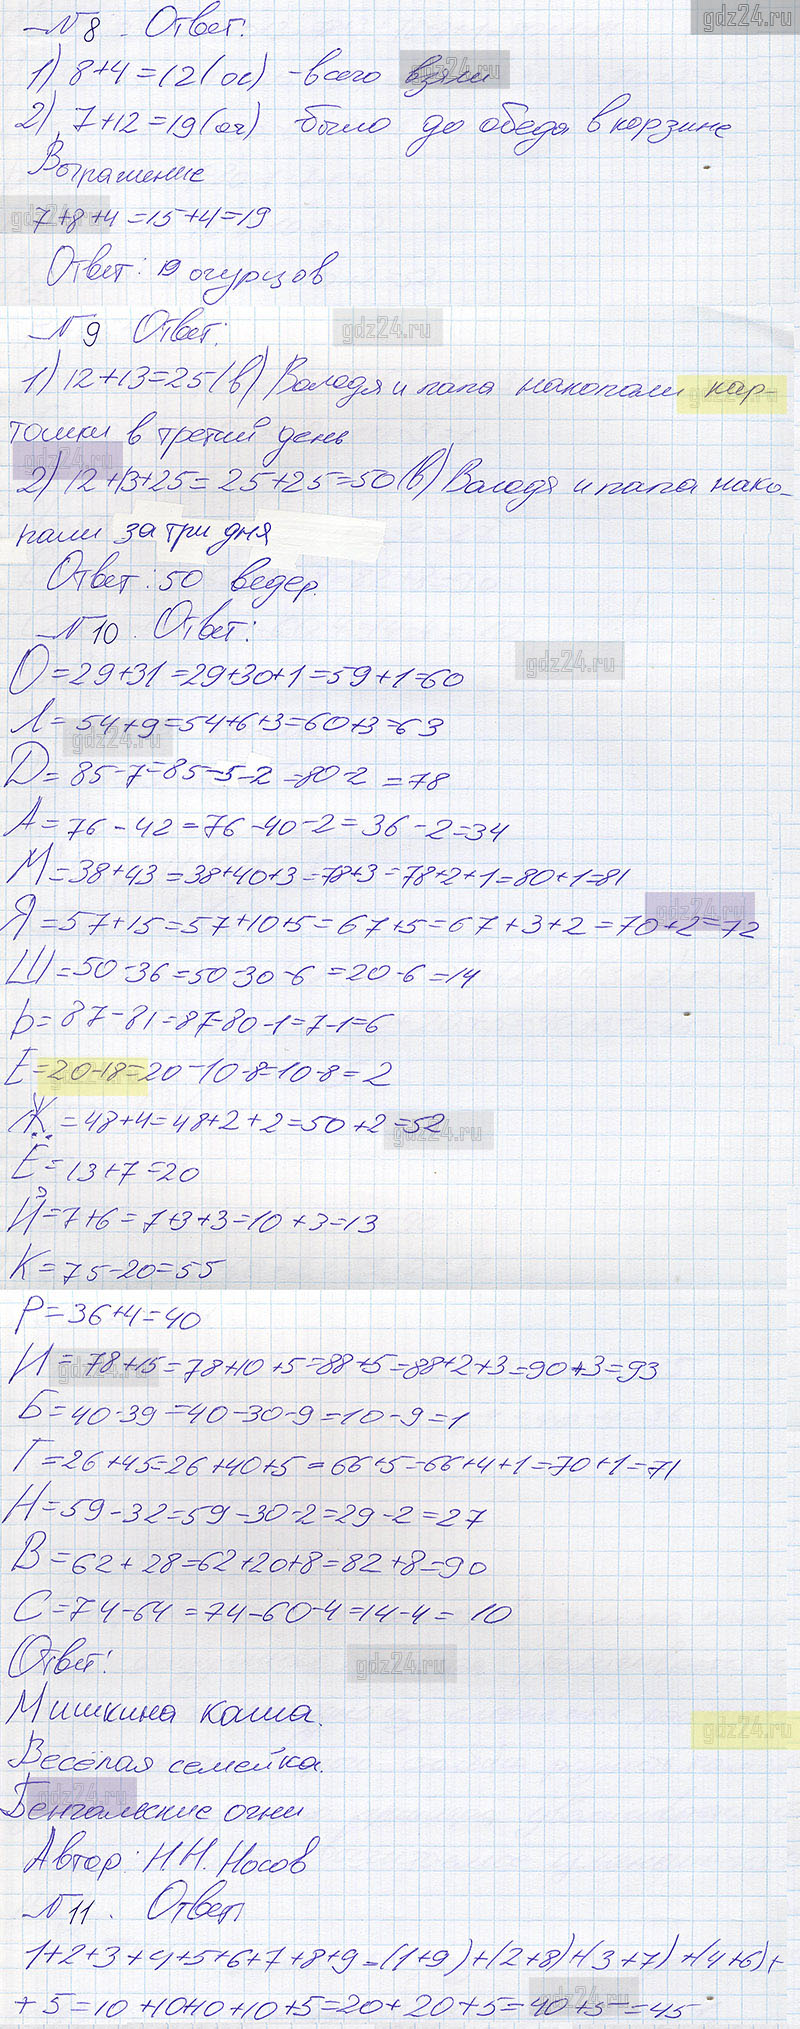 gdz24.ru
№8. Ответ:
1) 8+4=12(ог) - всего взяли
2) 7+12=19(ог) было до обеда в корзине
Выражение
7+8+4=15+4=19
Ответ: 19 огурцов
№9 Ответ:
1) 12+13=25(в) Володя и папа накопали кар-
тошки в третий день
2) 12+13+25=25+25=50(в) Володя и папа нако-
пали за три дня
Ответ: 50 ведер.
№10. Ответ:
О=29+31=29+30+1=59+1=60
Л=54+9=54+6+3=60+3=63
Д=85-7=85-5-2=80-2=78
А=76-42=76-40-2=36-2=34
М=38+43=38+40+3=78+3=78+2+1=80+1=81
Я=57+15=57+10+5=67+5=67+3+2=70+2=72
Ш=50-36=50-30-6=20-6=14
Ь=87-81=87-80-1=7-1=6
Е=20-18=20-10-8=10-8=2
Ж=48+4=48+2+2=50+2=52
Ё=13+7=20
Й=7+6=7+3+3=10+3=13
К=75-20=55
Р=36+4=40
И=78+15=78+10+5=88+5=88+2+3=90+3=93
Б=40-39=40-30-9=10-9=1
Г=26+45=26+40+5=66+5=66+4+1=70+1=71
Н=59-32=59-30-2=29-2=27
В=62+28=62+20+8=82+8=90
С=74-64=74-60-4=14-4=10
Ответ:
Мишкина каша.
Весёлая семейка.
Бенгальские огни
Автор: Н.Н. Носов
№11. Ответ
1+2+3+4+5+6+7+8+9=(1+9)+(2+8)+(3+7)+(4+6)+
+5=10+10+10+10+5=20+20+5=40+5=45